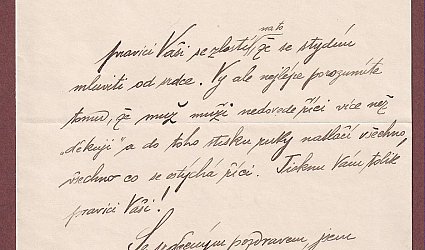 na to
pravici Vaši se zlostí, že se stydím
mluviti od srdce. Vy ale nejlépe porozumíte
tomu, že muž muži nedovede říci více než
„děkuji" a do toho stisku ruky natlačí všechno,
všechno co se ostýchá říci. Tisknu Vám tolik
pravici Vaši!
Se srdečným pozdravem jsem